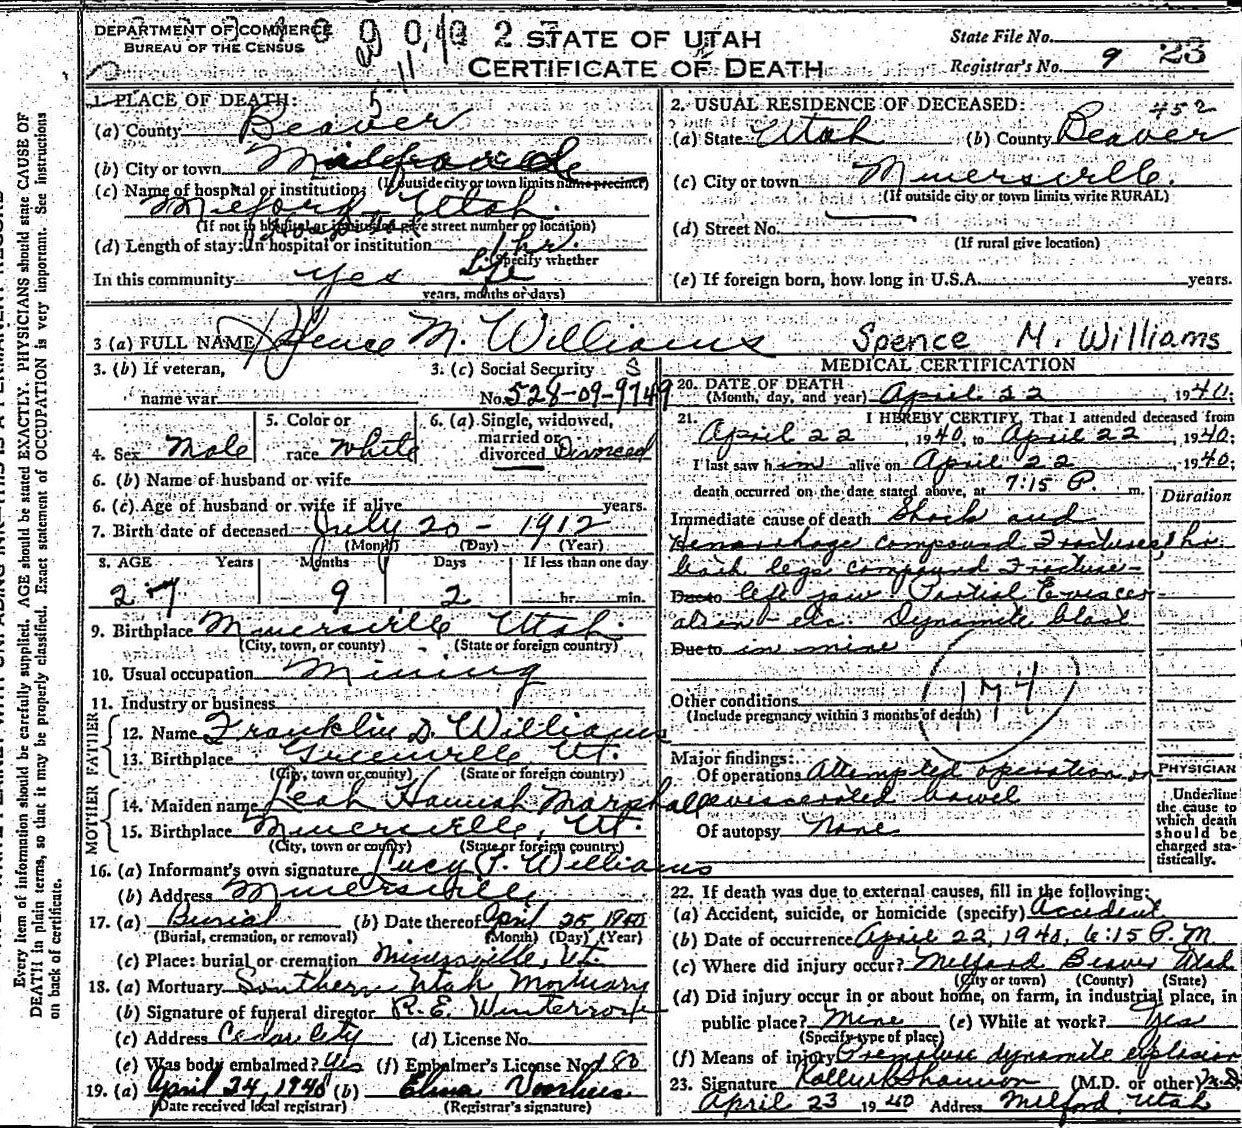 DEPARTMENT OF COMMERCE
BUREAU OF THE CENSUS
STATE OF UTAH
CERTIFICATE OF DEATH
State File No.
Registrar's No. 9 23
1. PLACE OF DEATH:
(a) County Beaver
(b) City or town
(If outside city or town limits name precinct)
(c) Name of hospital or institution:
Milford Utah.
(If not in hospital or institution give street number or location)
(d) Length of stay: In hospital or institution 1 hr.
(Specify whether
In this community yes Life
years, months or days)
2. USUAL RESIDENCE OF DECEASED: 452
(a) State Utah (b) County Beaver
(c) City or town Minersville.
(If outside city or town limits write RURAL)
(d) Street No.
(If rural give location)
(e) If foreign born, how long in U.S.A. years.
3 (a) FULL NAME Spence M. Williams Spence M. Williams
3. (b) If veteran,
name war
3. (c) Social Security
No. 528-09-9749
4. Sex Male
5. Color or
race White
6. (a) Single, widowed,
married or
divorced Divorced
6. (b) Name of husband or wife
6. (c) Age of husband or wife if alive years.
7. Birth date of deceased July 20 - 1912
(Month) (Day) (Year)
8. AGE Years Months Days If less than one day
27 9 2 hr. min.
9. Birthplace Minersville Utah
(City, town, or county) (State or foreign country)
10. Usual occupation Mining
11. Industry or business
FATHER
12. Name Franklin D. Williams
13. Birthplace Greenville Ut.
(City, town or county) (State or foreign country)
MOTHER
14. Maiden name Leah Hannah Marshall
15. Birthplace Minersville, Ut.
(City, town or county) (State or foreign country)
16. (a) Informant's own signature Lucy P. Williams
(b) Address Minersville
17. (a) Burial (b) Date thereof April 25 1940
(Burial, cremation, or removal) (Month) (Day) (Year)
(c) Place: burial or cremation Minersville, Ut.
18. (a) Mortuary Southern Utah Mortuary
(b) Signature of funeral director R. E. Winterrose
(c) Address Cedar City (d) License No.
(e) Was body embalmed? Yes (f) Embalmer's License No. 180
19. (a) April 24, 1940 (b) Elma Voorhees
(Date received local registrar) (Registrar's signature)
MEDICAL CERTIFICATION
20. DATE OF DEATH
(Month, day, and year) April 22, 1940;
21. I HEREBY CERTIFY, That I attended deceased from
April 22, 1940, to April 22, 1940;
I last saw him alive on April 22, 1940;
death occurred on the date stated above, at 7:15 P. m.
Duration
Immediate cause of death Shock and
Hemorrhage compound Fractures 1 hr.
both legs compound Fracture-
Due to left jaw Partial Eviscer-
ation - etc. Dynamite blast
Due to in mine
174
Other conditions
(Include pregnancy within 3 months of death)
Major findings:
Of operations Attempted operation on
eviscerated bowel
Of autopsy None
PHYSICIAN
Underline
the cause to
which death
should be
charged sta-
tistically.
22. If death was due to external causes, fill in the following:
(a) Accident, suicide, or homicide (specify) Accident
(b) Date of occurrence April 22, 1940, 6:15 P.M
(c) Where did injury occur? Milford Beaver Utah
(City or town) (County) (State)
(d) Did injury occur in or about home, on farm, in industrial place, in
public place? Mine (e) While at work? Yes
(Specify type of place)
(f) Means of injury Premature dynamite explosion
23. Signature Shannon (M.D. or other) M.D.
April 23 1940 Address Milford, Utah
Every item of information should be carefully supplied. AGE should be stated EXACTLY. PHYSICIANS should state CAUSE OF
DEATH in plain terms, so that it may be properly classified. Exact statement of OCCUPATION is very important. See instructions
on back of certificate.